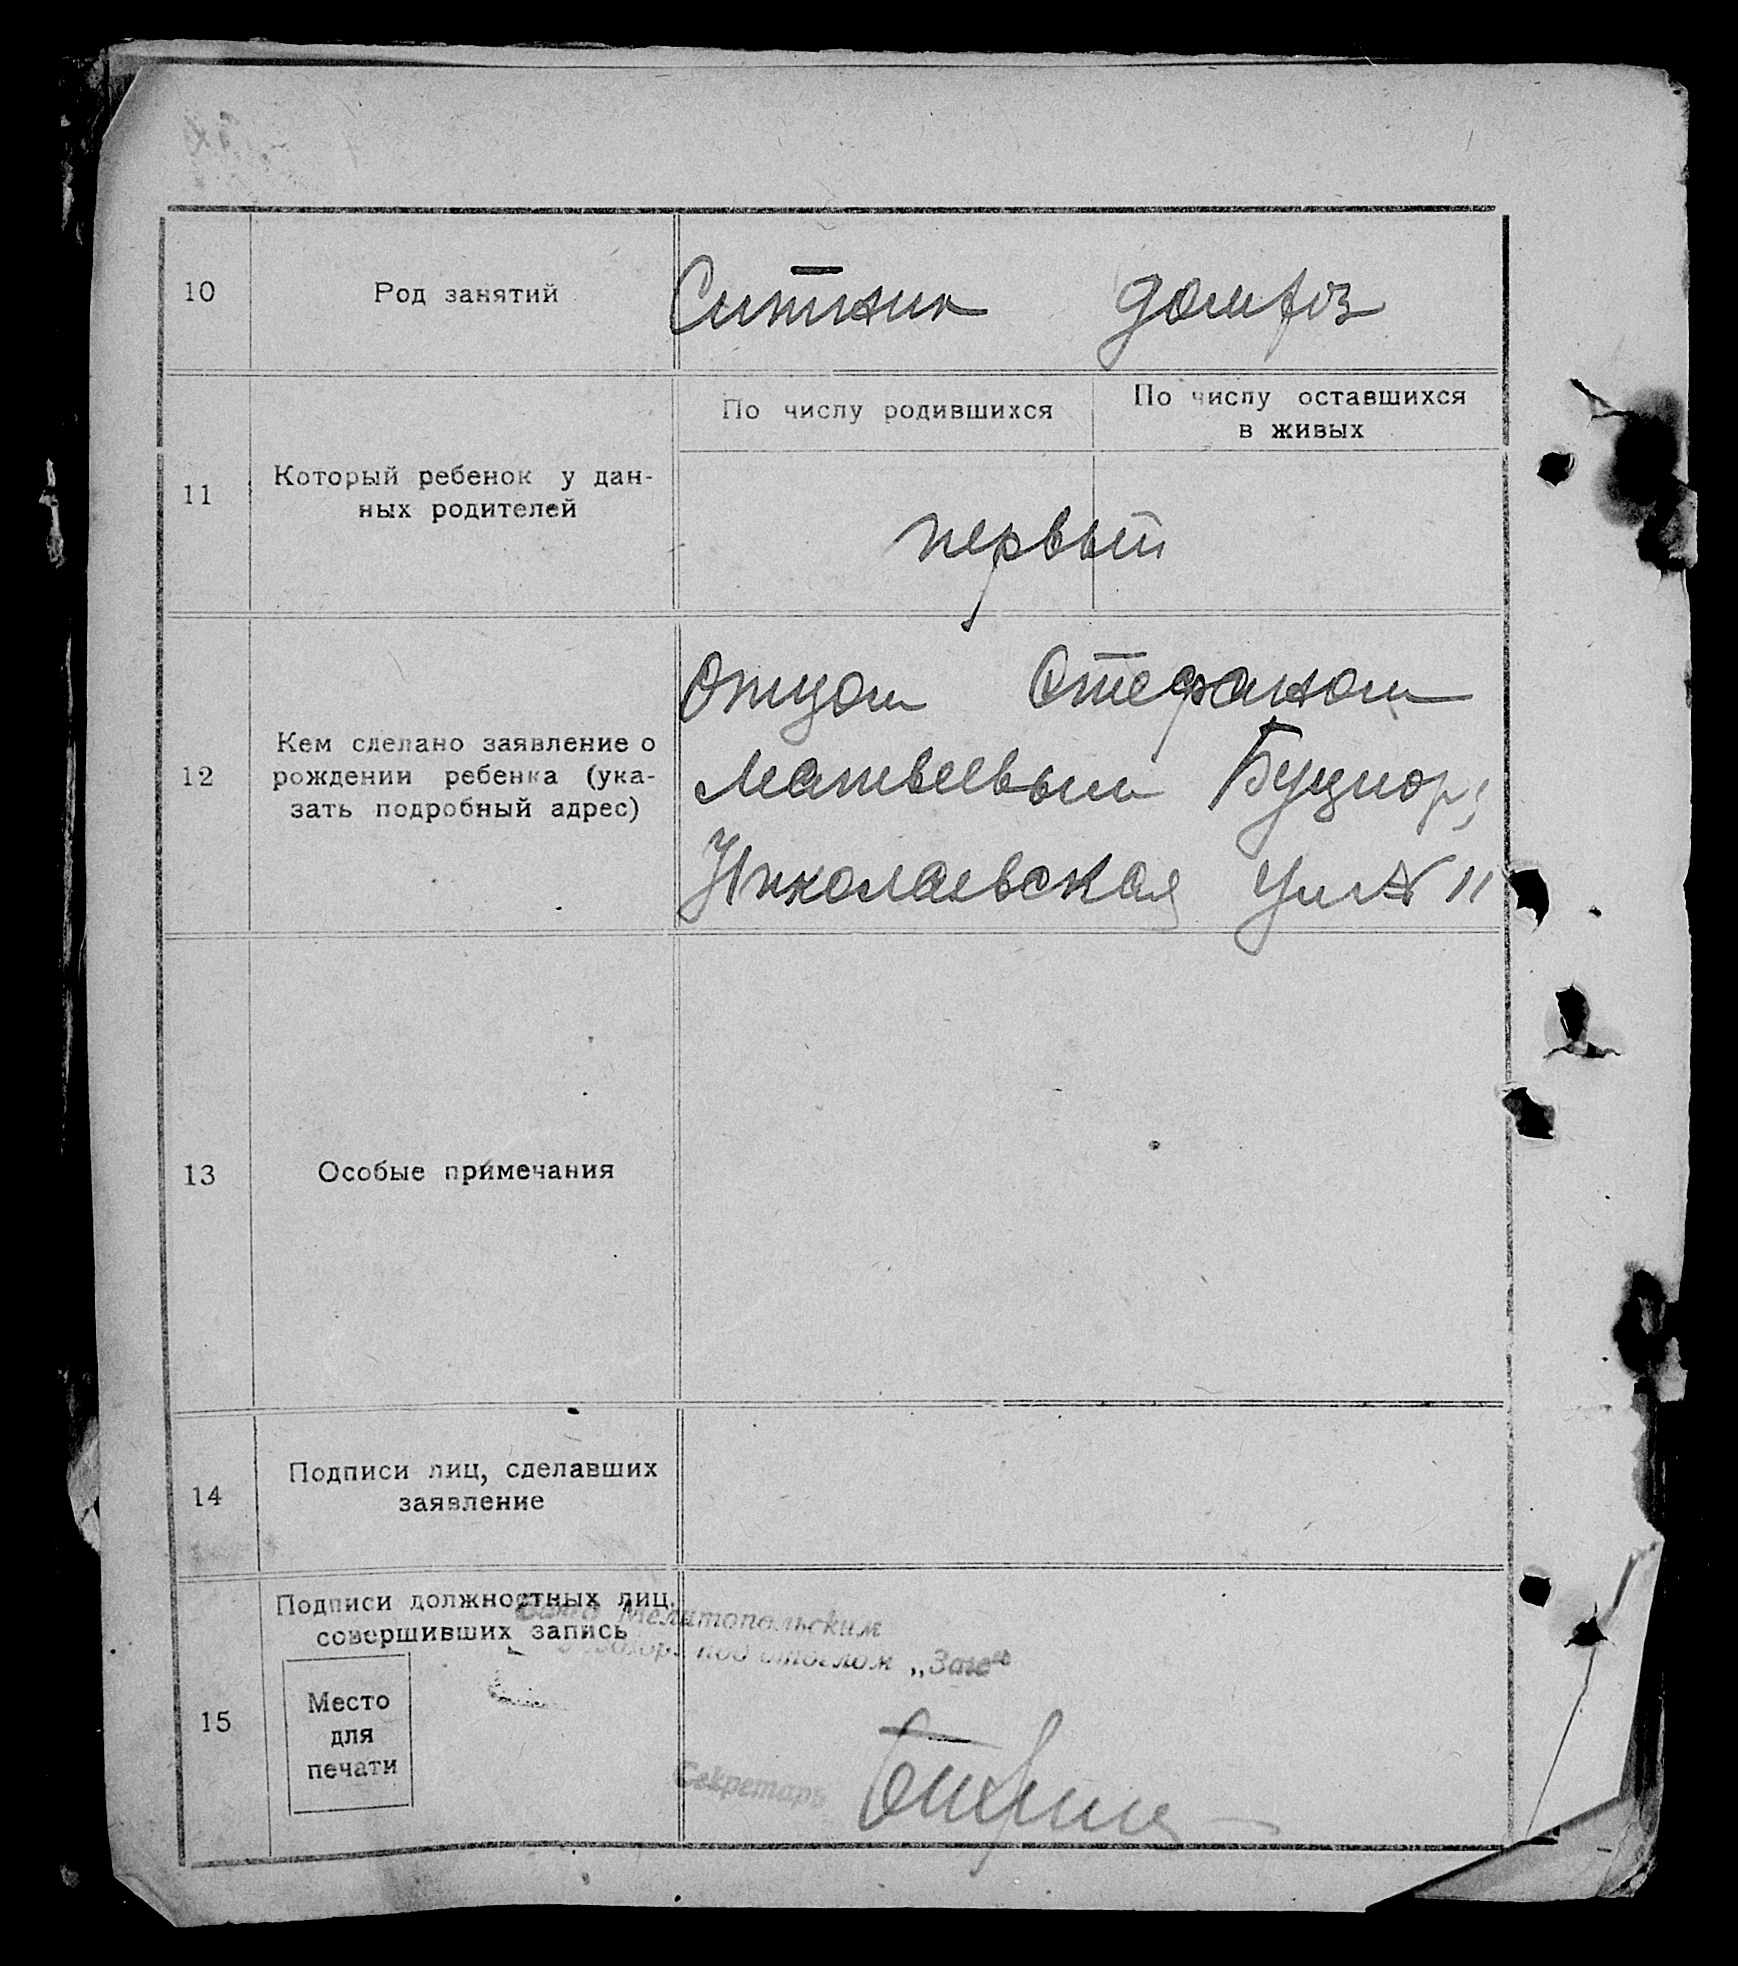 10 Род занятий Ситник домхоз
11 Который ребенок у дан-
ных родителей
По числу родившихся
По числу оставшихся
в живых
первый
12 Кем сделано заявление о
рождении ребенка (ука-
зать подробный адрес)
Отцом Стефаном
Матвеевым Буцнор,
Николаевская Ул № 11
13 Особые примечания
14 Подписи лиц, сделавших
заявление
15 Подписи должностных лиц,
совершивших запись
Место
для
печати
Мелитопольским
под столом „Загс“
Секретарь